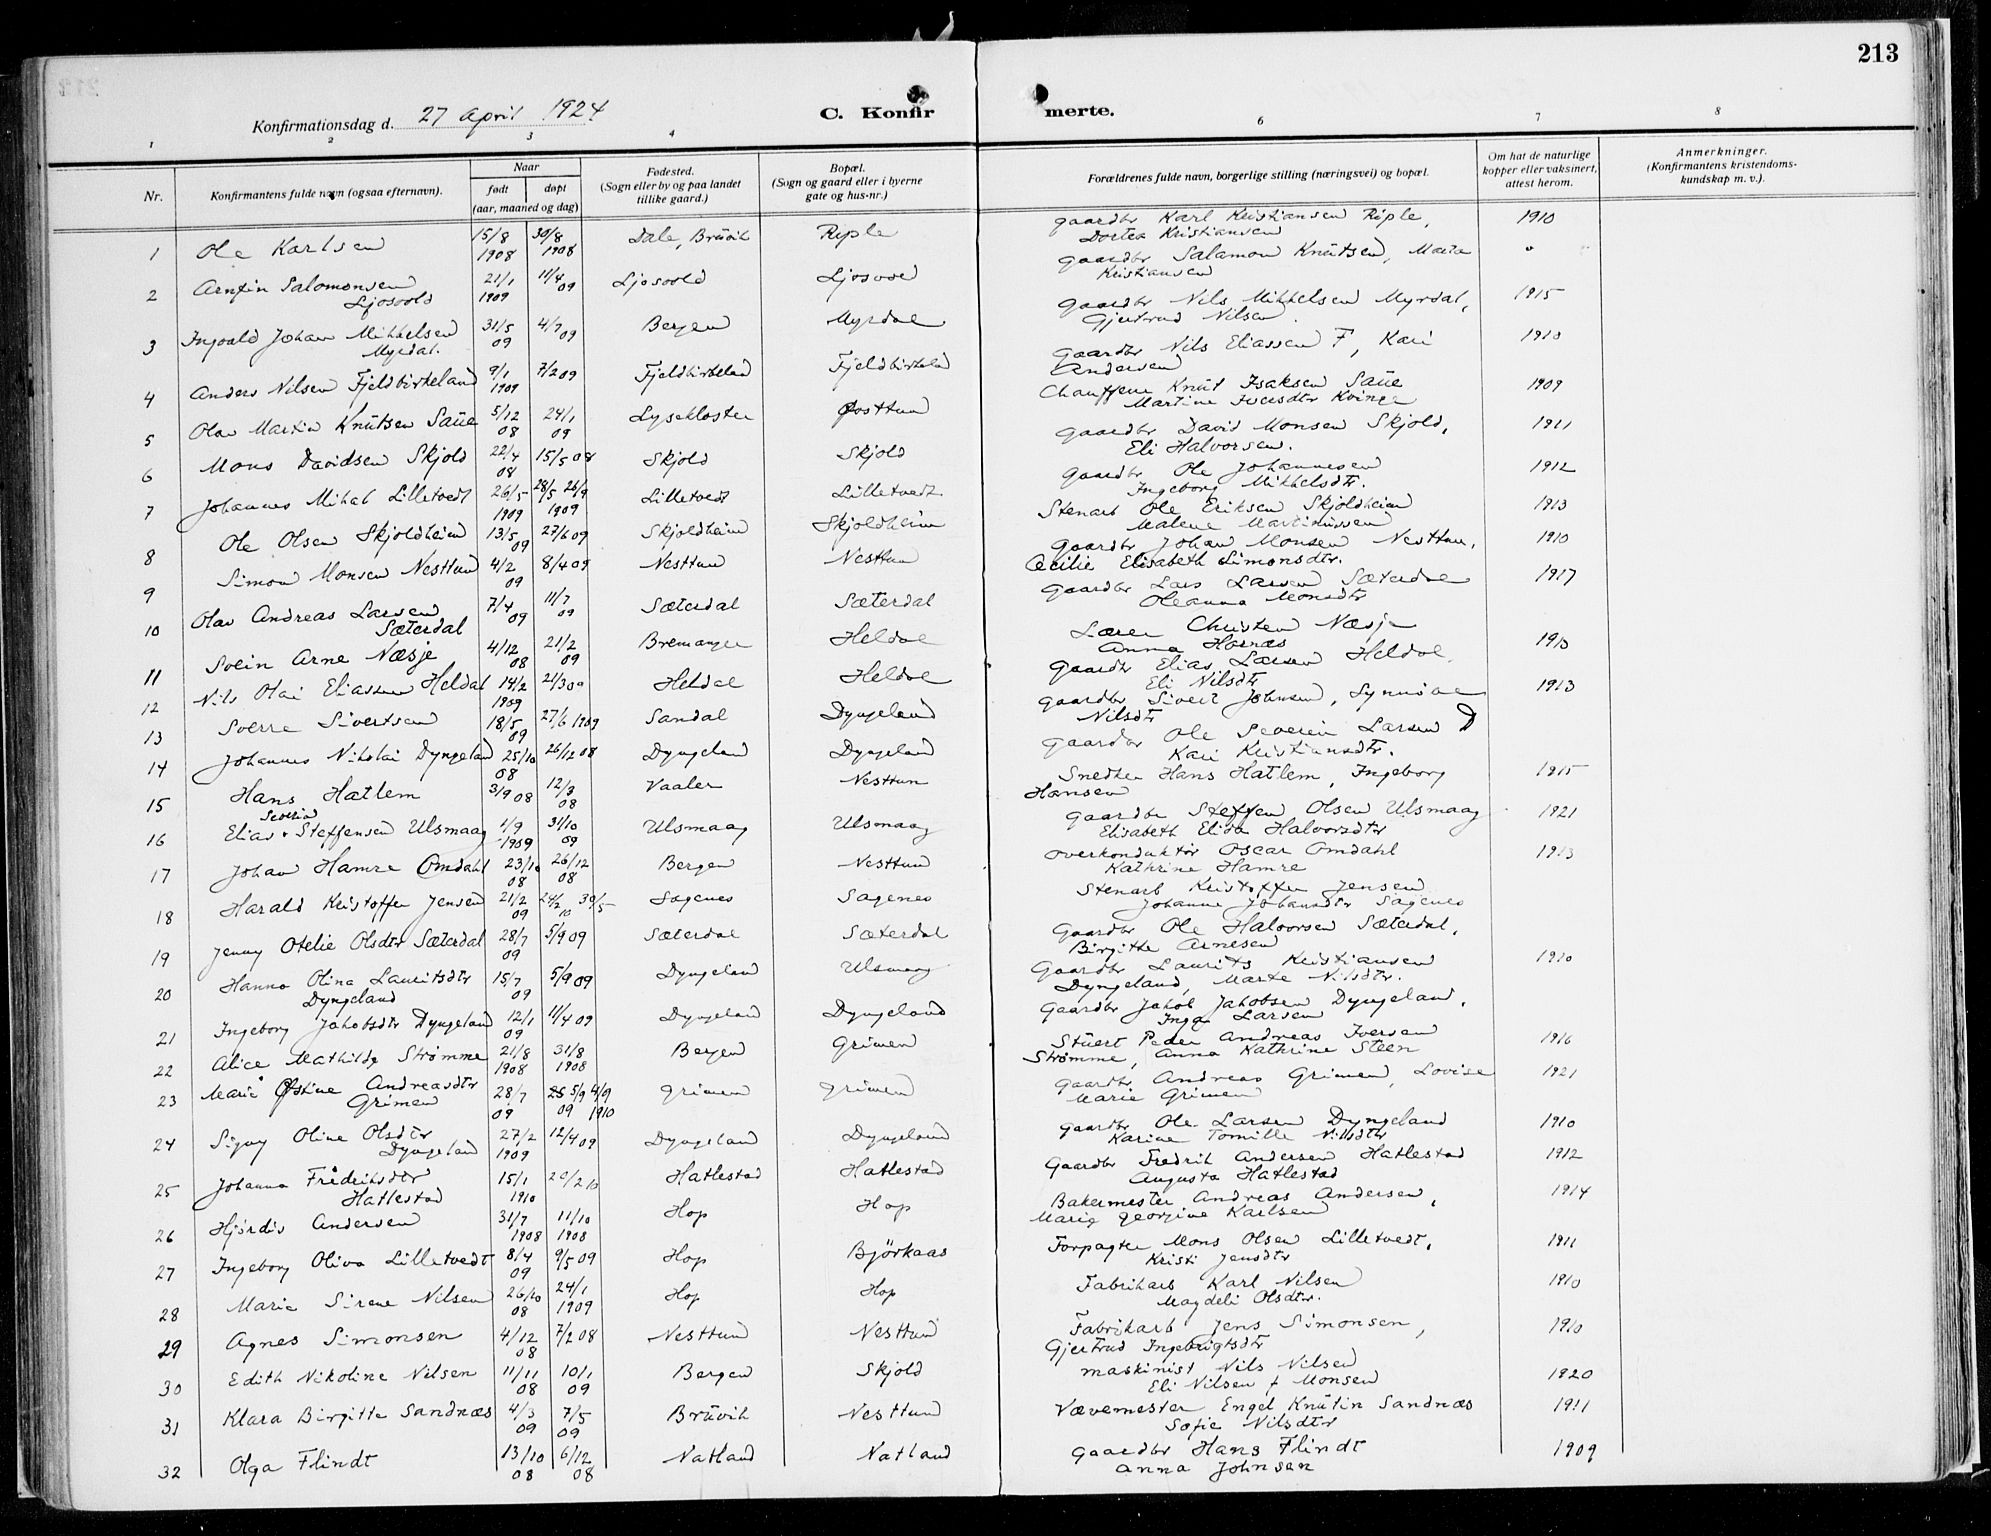 213
Konfirmationsdag d. 27 April 1924
C. Konfir
merte.
1 2 3 4 6 7 8
Nr.
Konfirmantens fulde navn (ogsaa efternavn).
Naar
født døpt
(aar, maaned og dag)
Fødested.
(Sogn eller by og paa landet
tillike gaard.)
Bopæl.
(Sogn og gaard eller i byerne
gate og hus-nr.)
Forældrenes fulde navn, borgerlige stilling (næringsvei) og bopæl.
Om hat de naturlige
kopper eller vaksinert,
attest herom.
Anmerkninger.
(Konfirmantens kristendoms-
kundskap m. v.).
1 Ole Karlsen 15/8 1908 30/8 1908 Dale, Brüvik Riple Gaardbr Karl Kristiansen Riple, 1910
Dortea Kristiansen
2 Arnfin Salomonsen 21/1 1909 11/4 09 Ljosvold Ljosvol Gaardbr Salamon Knütsen, Maria "
Ljosvold Kristiansen
3 Ingvald Johan Mikkelsen 31/5 09 4/7 09 Bergen Myrdal Gaardbr Nils Mikkelsen Myrdal, 1915
Myrdal. Gjertrud Nilsen
4 Anders Nilsen Fjeldbirkeland 9/1 1909 7/2 09 Fjeldbirkeland Fjeldbirkeland Gaardbr Nils Eliassen F, Kari 1910
Andersen
5 Olav Martin Knütsen Saüe 5/12 08 24/1 09 Lysekloster Østtun Chauffeur Knüt Isaksen Saüe 1909
Martine Iversdtr Kvinge
6 Mons Davidsen Skjold 22/4 08 15/5 08 Skjold Skjold Gaardbr David Monsen Skjold, 1911
Eli Halvorsen.
7 Johannes Mikal Lilletvedt 26/5 1909 28/5 26/9 1909 Lilletvedt Lilletvedt Gaardbr Ole Johannesen 1912
Ingeborg Mikkelsdtr.
8 Ole Olsen Skjoldheim 13/5 09 27/6 09 Skjoldheim Skjoldheim Stenarb Ole Eriksen Skjoldheim 1913
Malene Martinüssen
9 Simon Monsen Nesttun 4/2 09 8/4 09 Nesttun Nesttun Gaardbr Johan Monsen Nesttun, 1910
Cecilie Elisabeth Simonsdtr.
10 Olav Andreas Larsen 7/4 09 11/7 09 Sæterdal Sæterdal Gaardbr Lars Larsen Sæterdal 1917
Sæterdal Oleanna Monsdtr
11 Svein Arne Næsje 4/12 08 21/2 09 Bremanger Heldal Lærer Christen Næsje
Anna Hornæs 1910
12 Nils Olai Eliassen Heldal 14/2 1909 21/3 09 Heldal Heldal Gaardbr Elias Larsen Heldal.
Eli Nilsdtr 1913
13 Sverre Sivertsen 18/5 09 27/6 1909 Sandal Dyngeland Gaardbr Sivert Johnsen, Synnøve
Nilsdtr
14 Johannes Nikolai Dyngeland 25/10 08 26/12 08 Dyngeland Dyngeland Gaardbr Ole Severin Larsen D
Kari Kristiansdtr.
15 Hans Hatlem 3/9 08 12/3 08 Vaaler Nesttun Snedker Hans Hatlem, Ingeborg 1915
Hansen
Severin
16 Elias Steffensen Ulsmaag 1/9 1909 31/10 09 Ulsmaag Ulsmaag Gaardbr Steffen Olsen Ulsmaag 1921
Elisabeth Elisa Halvorsdtr
17 Johan Hamre Omdahl 23/10 08 26/12 08 Bergen Nesttun Overkonduktør Oscar Omdahl 1913
Kathrine Hamre
18 Harald Kristoffer Jensen 21/2 09 24/2 10 30/5 Sagenes Sagenes Stenarb Kristoffer Jensen
Johanne Johansdtr Sagenes
19 Jenny Otelie Olsdtr Sæterdal 28/7 09 5/9 09 Sæterdal Sæterdal Gaardbr Ole Halvorsen Sæterdal,
Birgitte Arnesen
20 Hanna Olina Lauritsdtr 15/7 09 5/9 09 Dyngeland Ulsmaag Gaardbr Laurits Kristiansen 1910
Dyngeland Dyngeland, Marte Nilsdtr.
21 Ingeborg Jakobsdtr Dyngeland 12/1 09 11/4 09 Dyngeland Dyngeland Gaardbr Jakob Jakobsen Dyngeland,
Inga Larsen
22 Alice Mathilde Strømme 21/8 1908 31/8 1908 Bergen Grimen Stuert Peder Andreas Iversen 1916
Strømme, Anna Kathrine Steen
23 Marie Østine Andreasdtr 28/7 09 5/9 09 4/9 1910 Grimen Grimen Gaardbr Andreas Grimen, Lovise 1921
Grimen Marie Grimen
24 Signy Oline Olsdtr 27/2 1909 12/4 09 Dyngeland Dyngeland Gaardbr Ole Larsen Dyngeland 1910
Dyngeland Karine Tomille Nilsdtr
25 Johanna Fredriksdtr 15/1 1910 20/2 10 Hatlestad Hatlestad Gaardbr Fredrik Andersen Hatlestad 1912
Hatlestad Augusta Hatlestad
26 Hjørdis Andersen 31/7 1908 11/10 1908 Hop Hop Bakermester Andreas Andersen, 1914
Marie Georgine Karlsen
27 Ingeborg Oliva Lilletvedt 8/4 09 9/5 09 Hop Björkaas Forpagter Mons Olsen Lilletvedt, 1911
Kristi Jensdtr
28 Marie Sirene Nilsen 26/10 08 24/1 1909 Hop Hop Fabrikarb Karl Nilsen 1910
Magdeli Olsdtr.
29 Agnes Simonsen 4/12 08 7/2 08 Nesttun Nesttun Fabrikarb Jens Simonsen, 1910
Gjertrud Ingebrigtsdtr
30 Edith Nikoline Nilsen 11/11 08 10/1 09 Bergen Skjold Maskinist Nils Nilsen 1920
Eli Nilsen f Monsen
31 Klara Birgitte Sandnæs 4/3 09 7/5 09 Brüvik Nesttun Vævemester Engel Knütin Sandnæs 1911
Sofie Nilsdtr
32 Olga Flindt 13/10 08 6/12 08 Natland Natland Gaardbr Hans Flindt 1909
Anna Johnsen